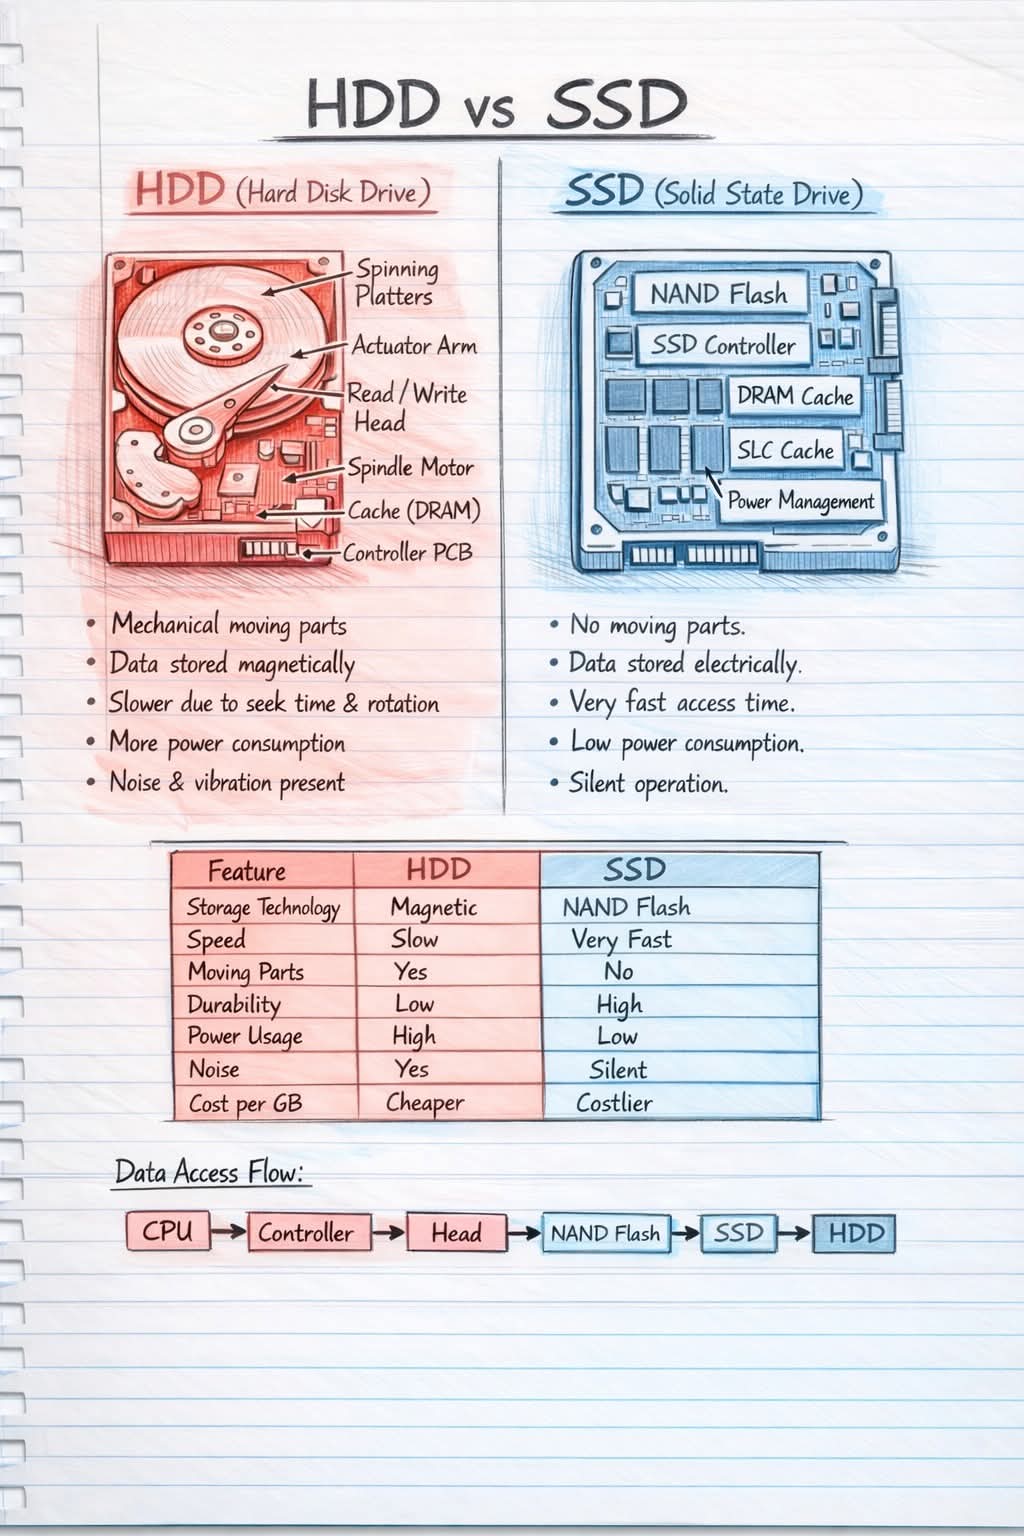 HDD vs SSD
HDD (Hard Disk Drive)
Spinning
Platters
Actuator Arm
Read / Write
Head
Spindle Motor
Cache (DRAM)
Controller PCB
• Mechanical moving parts
• Data stored magnetically
• Slower due to seek time & rotation
• More power consumption
• Noise & vibration present
SSD (Solid State Drive)
NAND Flash
SSD Controller
DRAM Cache
SLC Cache
Power Management
• No moving parts.
• Data stored electrically.
• Very fast access time.
• Low power consumption.
• Silent operation.
Feature HDD SSD
Storage Technology Magnetic NAND Flash
Speed Slow Very Fast
Moving Parts Yes No
Durability Low High
Power Usage High Low
Noise Yes Silent
Cost per GB Cheaper Costlier
Data Access Flow:
CPU → Controller → Head → NAND Flash → SSD → HDD